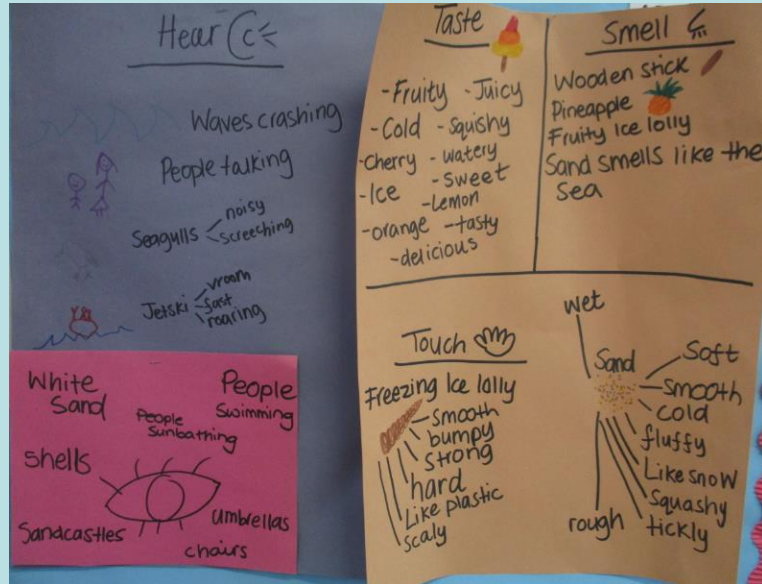 Hear
Waves crashing
People talking
Seagulls
noisy
screeching
Jetski
vroom
fast
roaring
White
Sand
People
Swimming
People
Sunbathing
shells
Sandcastles
umbrellas
chairs
Taste
-Fruity -Juicy
-Cold -Squishy
-Cherry -watery
-Ice -sweet
-Lemon
-orange -tasty
-delicious
Smell
Wooden stick
Pineapple
Fruity Ice lolly
Sand smells like the
sea
Touch
Freezing Ice lolly
smooth
bumpy
strong
hard
Like plastic
scaly
wet
Sand
Soft
Smooth
cold
fluffy
Like snow
Squashy
tickly
rough